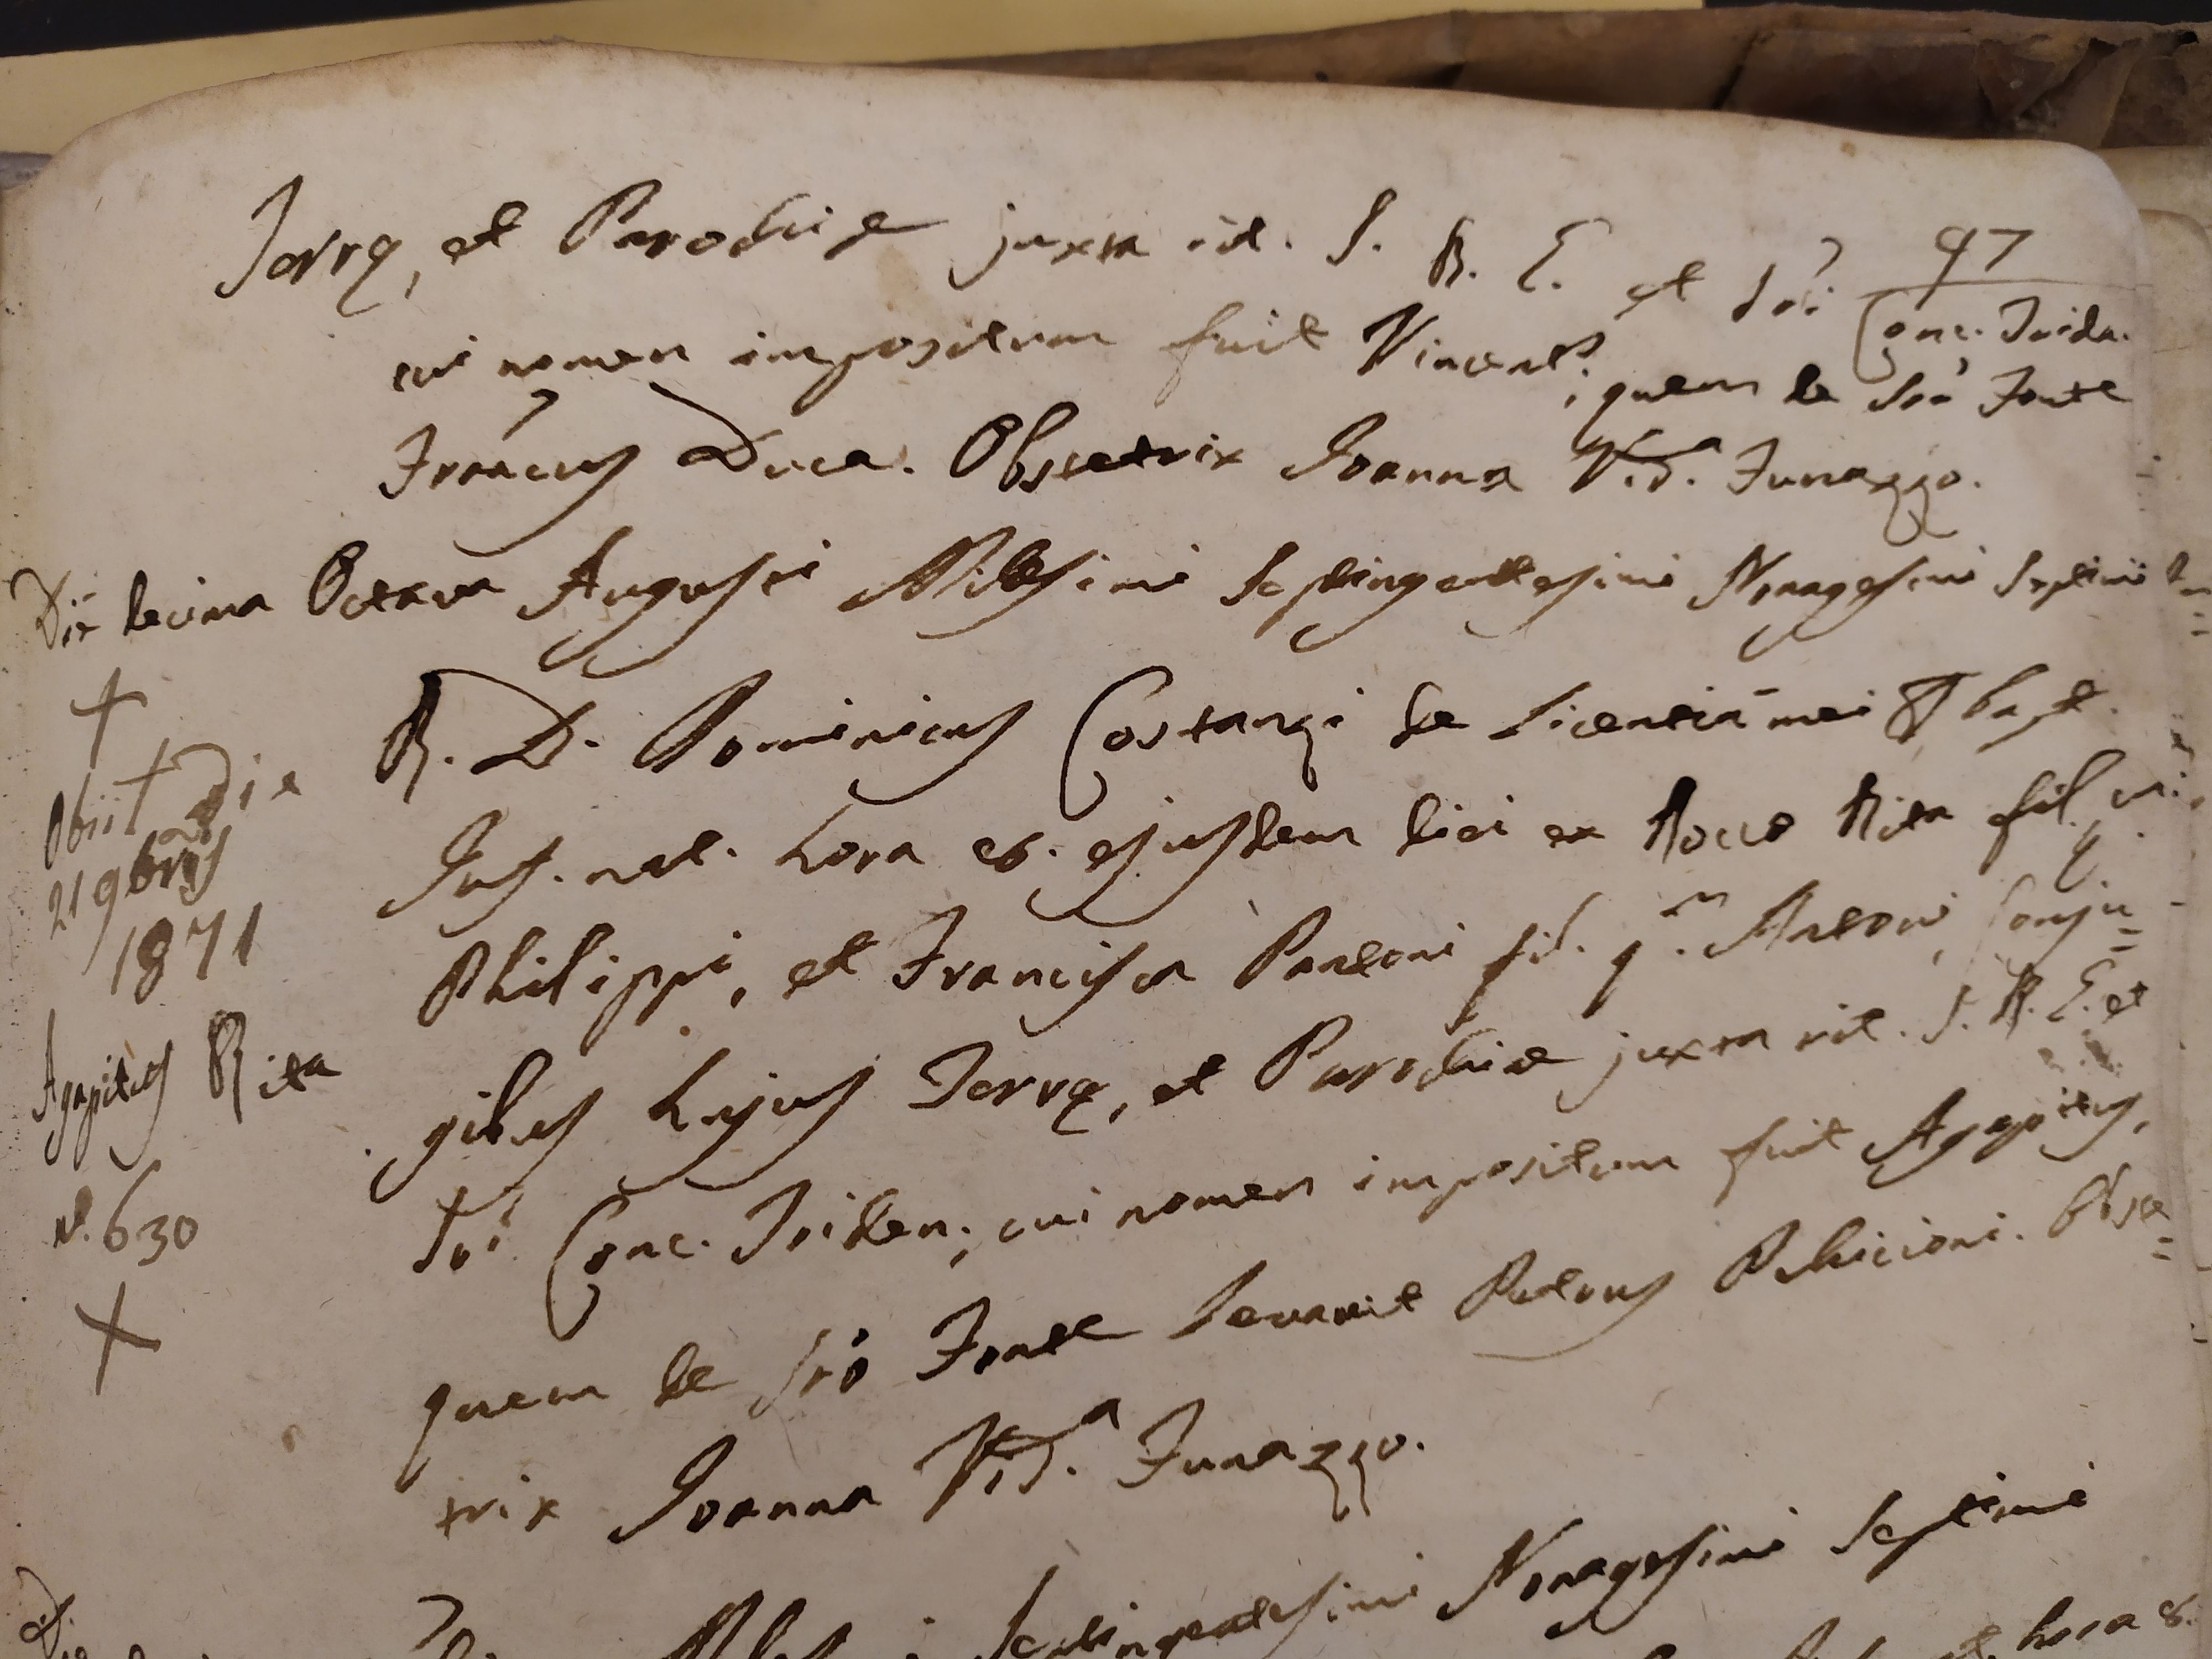 97
Terrę, et Parochiæ juxta rit. S. R. E. et Sri Conc. Triden.
cui nomen impositum fuit Vincent.s, quem de Sro Fonte
Francus Duca. Obstetrix Joanna Vid.a Funazzo.
Die decima Octava Augusti Millesimi Septingentesimi Nonagesimi Septimi
R. D. Dominicus Costanzi de licentiā mei bapt.
Inf. nat. hora 8. ejusdem diei ex Rocco Rita fil.
Philippi, et Francisca Pantoni fil. q.m Antonii, Conju=
gibus hujus Terrę, et Parochiæ juxta rit. S. R. E. et
Sri Conc. Triden., cui nomen impositum fuit Agapitus,
quem de Sro Fonte levavit Petrus Obste=
trix Joanna Vid.a Funazzo.
†
Obiit Die
21 9bris
1871
Agapitus Rita
N. 630
Septingentesimi Nonagesimi Septimi
hora 8.